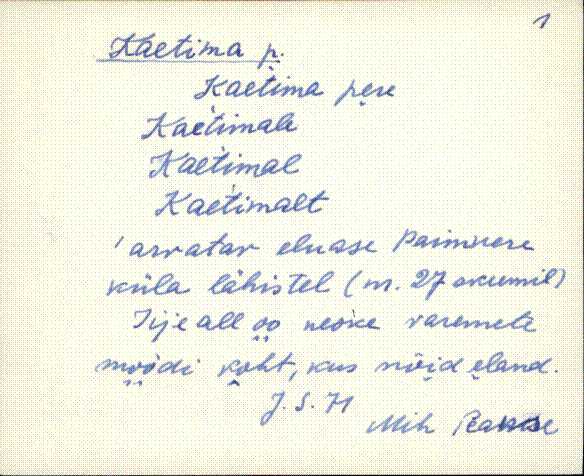 1
Kaetima p.
Kaetima pere
Kaetimale
Kaetimal
Kaetimalt
'arvatav eluase Paimvere
küla lähistel (m. 27
Iije all oo neoke varemete
moodi koht, kus nõid eland.
J. S. 71
Mih